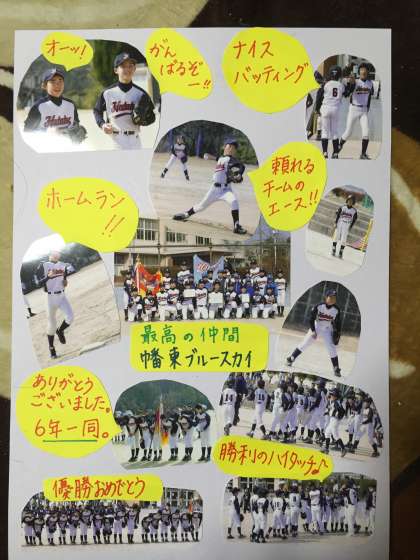 オーッ!
がん
ばるぞ
ー!!
ナイス
バッティング
6
頼れる
チームの
エース!!
ホームラン
!!
最高の仲間
幡東ブルースカイ
ありがとう
ございました。
6年一同。
勝利のハイタッチ♪
優勝おめでとう